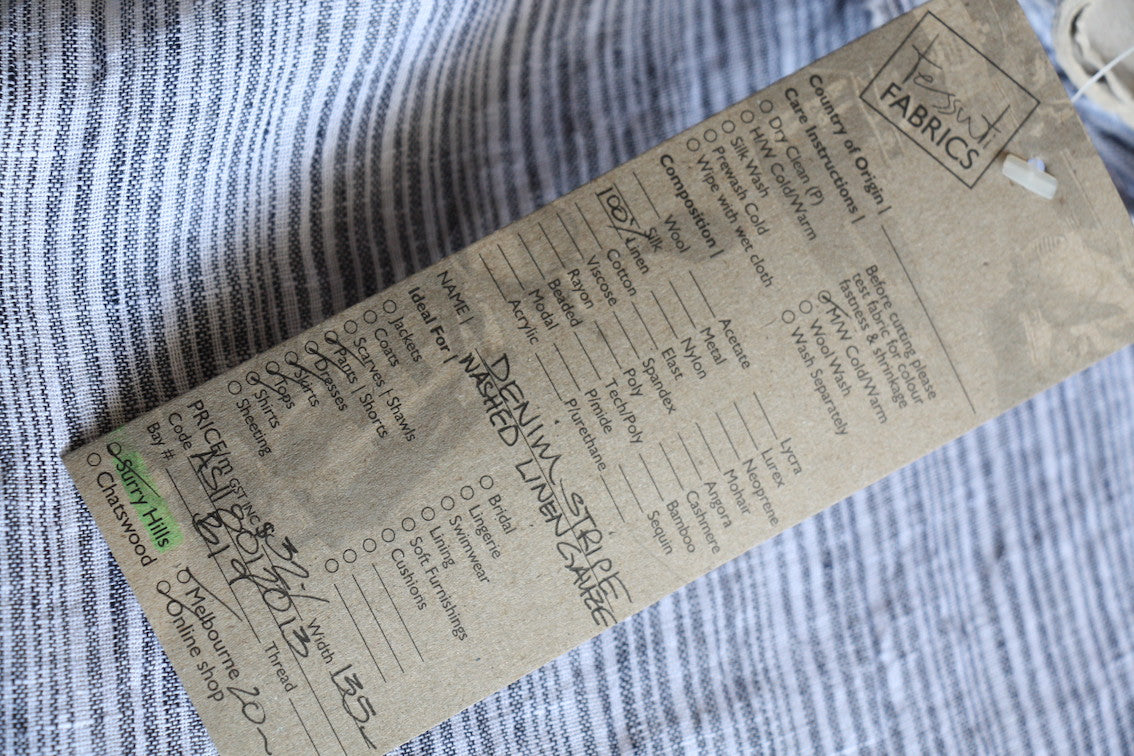 tessuti
FABRICS
Country of Origin |
Care Instructions |
Dry Clean (P)
H/W Cold/Warm
Silk Wash
Prewash Cold
Wipe with wet cloth
Before cutting please
test fabric for colour
fastness & shrinkage
M/W Cold/Warm
Wool Wash
Wash Separately
Composition |
Wool
Silk
100% Linen
Cotton
Viscose
Rayon
Beaded
Modal
Acrylic
Acetate
Metal
Nylon
Elast
Spandex
Poly
Tech/Poly
P/mide
P/urethane
Lycra
Lurex
Neoprene
Mohair
Angora
Cashmere
Bamboo
Sequin
NAME | DENIM STRIPE
WASHED LINEN GAUZE
Ideal For |
Jackets
Coats
Scarves | Shawls
Pants | Shorts
Dresses
Skirts
Tops
Shirts
Sheeting
Bridal
Lingerie
Swimwear
Lining
Soft Furnishings
Cushions
PRICE/m GST INC $
Width 135
Code
Bay #
Thread
Surry Hills
Chatswood
Melbourne 20
Online shop